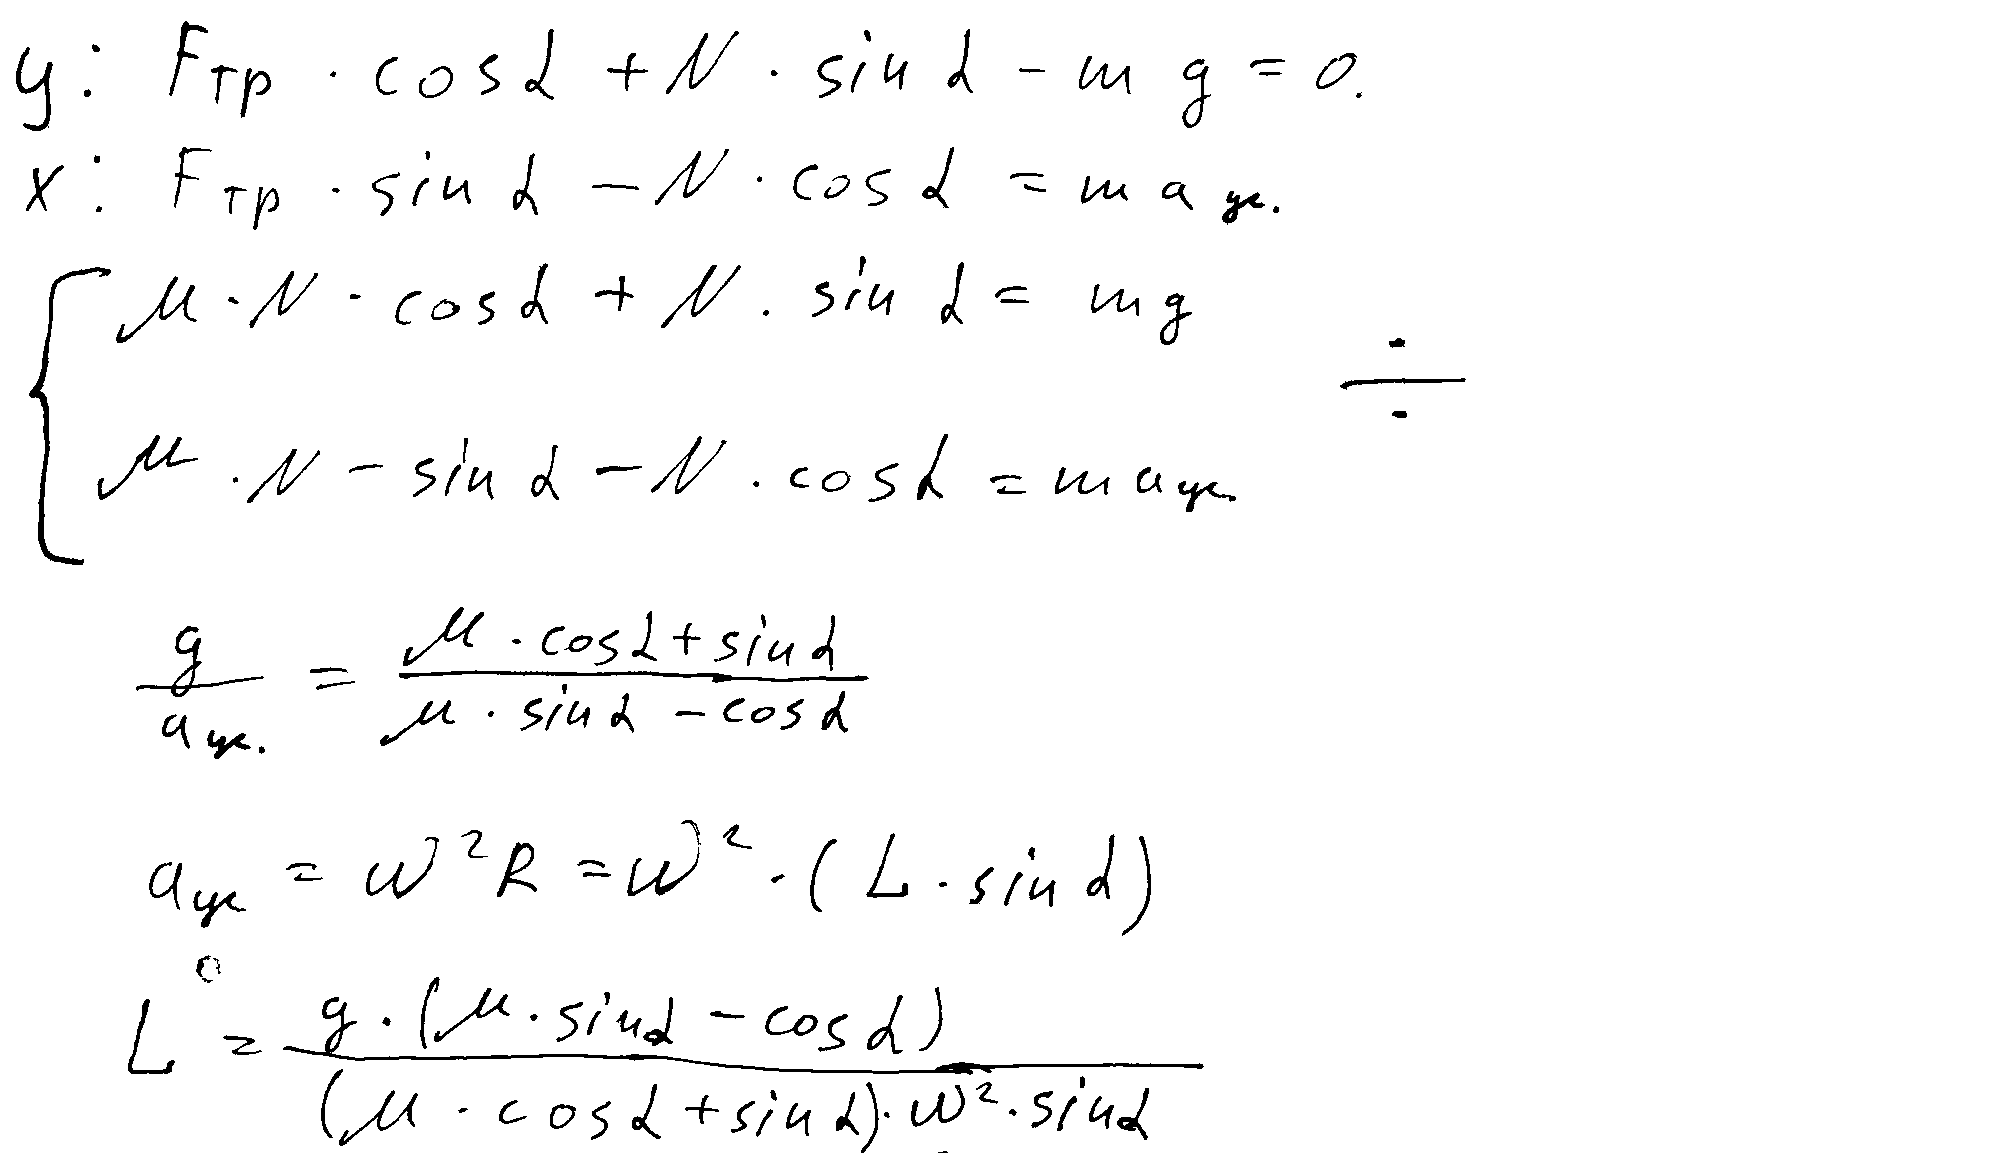 y: Fтр · cos α + N · sin α − m g = 0.
x: Fтр · sin α − N · cos α = m a ус.
μ · N · cos α + N · sin α = mg
÷
μ · N − sin α − N · cos α = m a ус.
g / a ус. = (μ · cos α + sin α) / (μ · sin α − cos α)
a ус = ω² R = ω² · ( L · sin α )
L = g · (μ · sin α − cos α) / (μ · cos α + sin α) · ω² · sin α